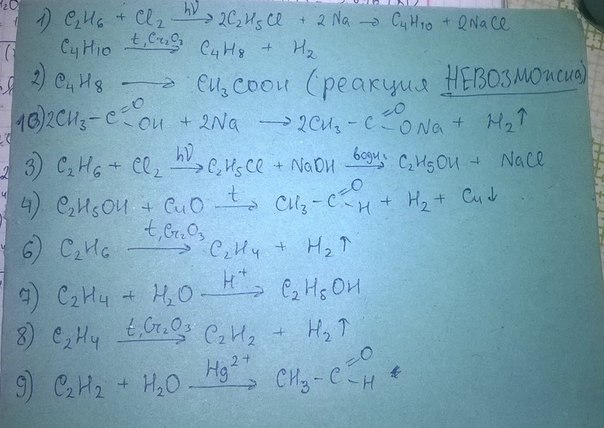 1) C₂H₆ + Cl₂ —hν→ 2C₂H₅Cl + 2Na → C₄H₁₀ + 2NaCl
C₄H₁₀ —t, Cr₂O₃→ C₄H₈ + H₂
2) C₄H₈ → CH₃COOH (реакция НЕВОЗМОЖНА)
10) 2CH₃-C(=O)-OH + 2Na → 2CH₃-C(=O)-ONa + H₂↑
3) C₂H₆ + Cl₂ —hν→ C₂H₅Cl + NaOH —водн.→ C₂H₅OH + NaCl
4) C₂H₅OH + CuO —t→ CH₃-C(=O)-H + H₂ + Cu↓
6) C₂H₆ —t, Cr₂O₃→ C₂H₄ + H₂↑
7) C₂H₄ + H₂O —H⁺→ C₂H₅OH
8) C₂H₄ —t, Cr₂O₃→ C₂H₂ + H₂↑
9) C₂H₂ + H₂O —Hg²⁺→ CH₃-C(=O)-H